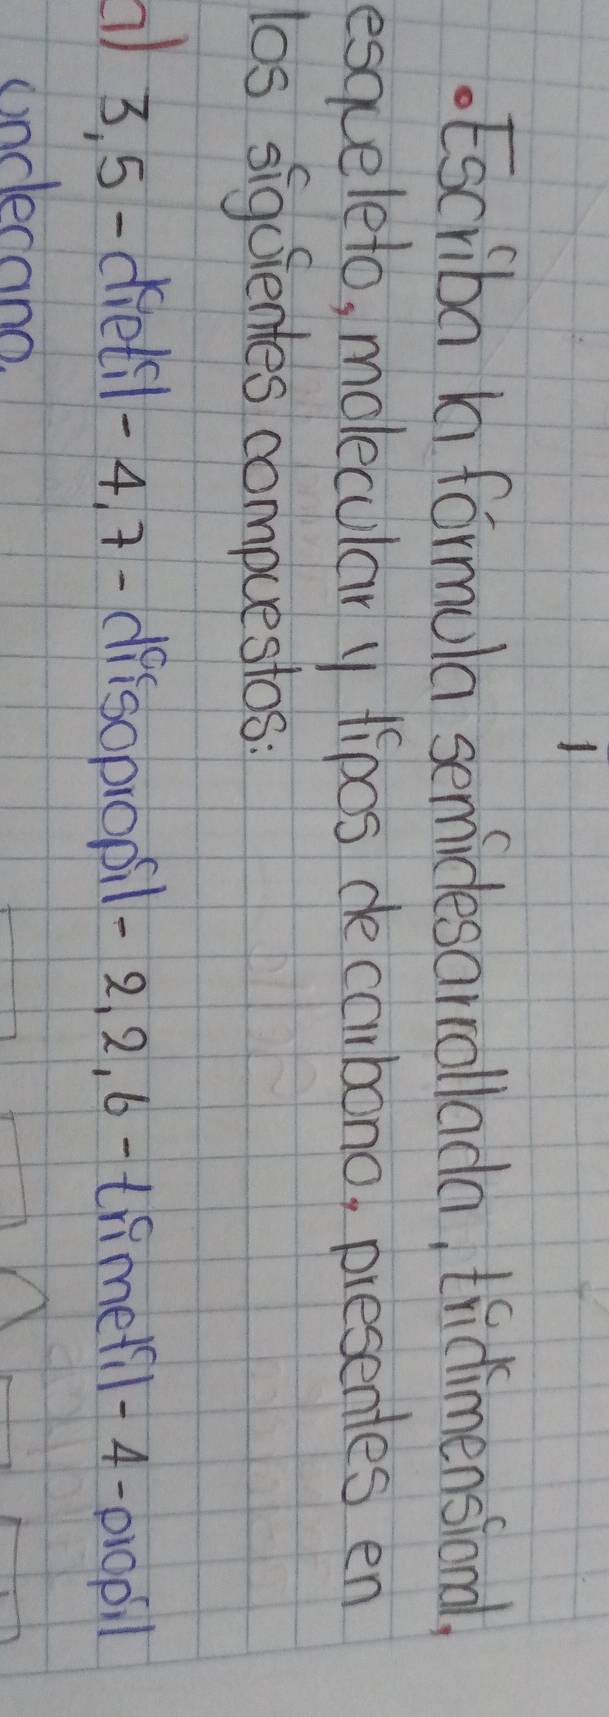 • Escriba la fórmula semidesarrollada, tridimensional,
esqueleto, molecular y tipos de carbono, presentes en
los siguientes compuestos:
a) 3,5-dietil-4,7-diisopropil-2,2,6-trimetil-4-propil
undecano.